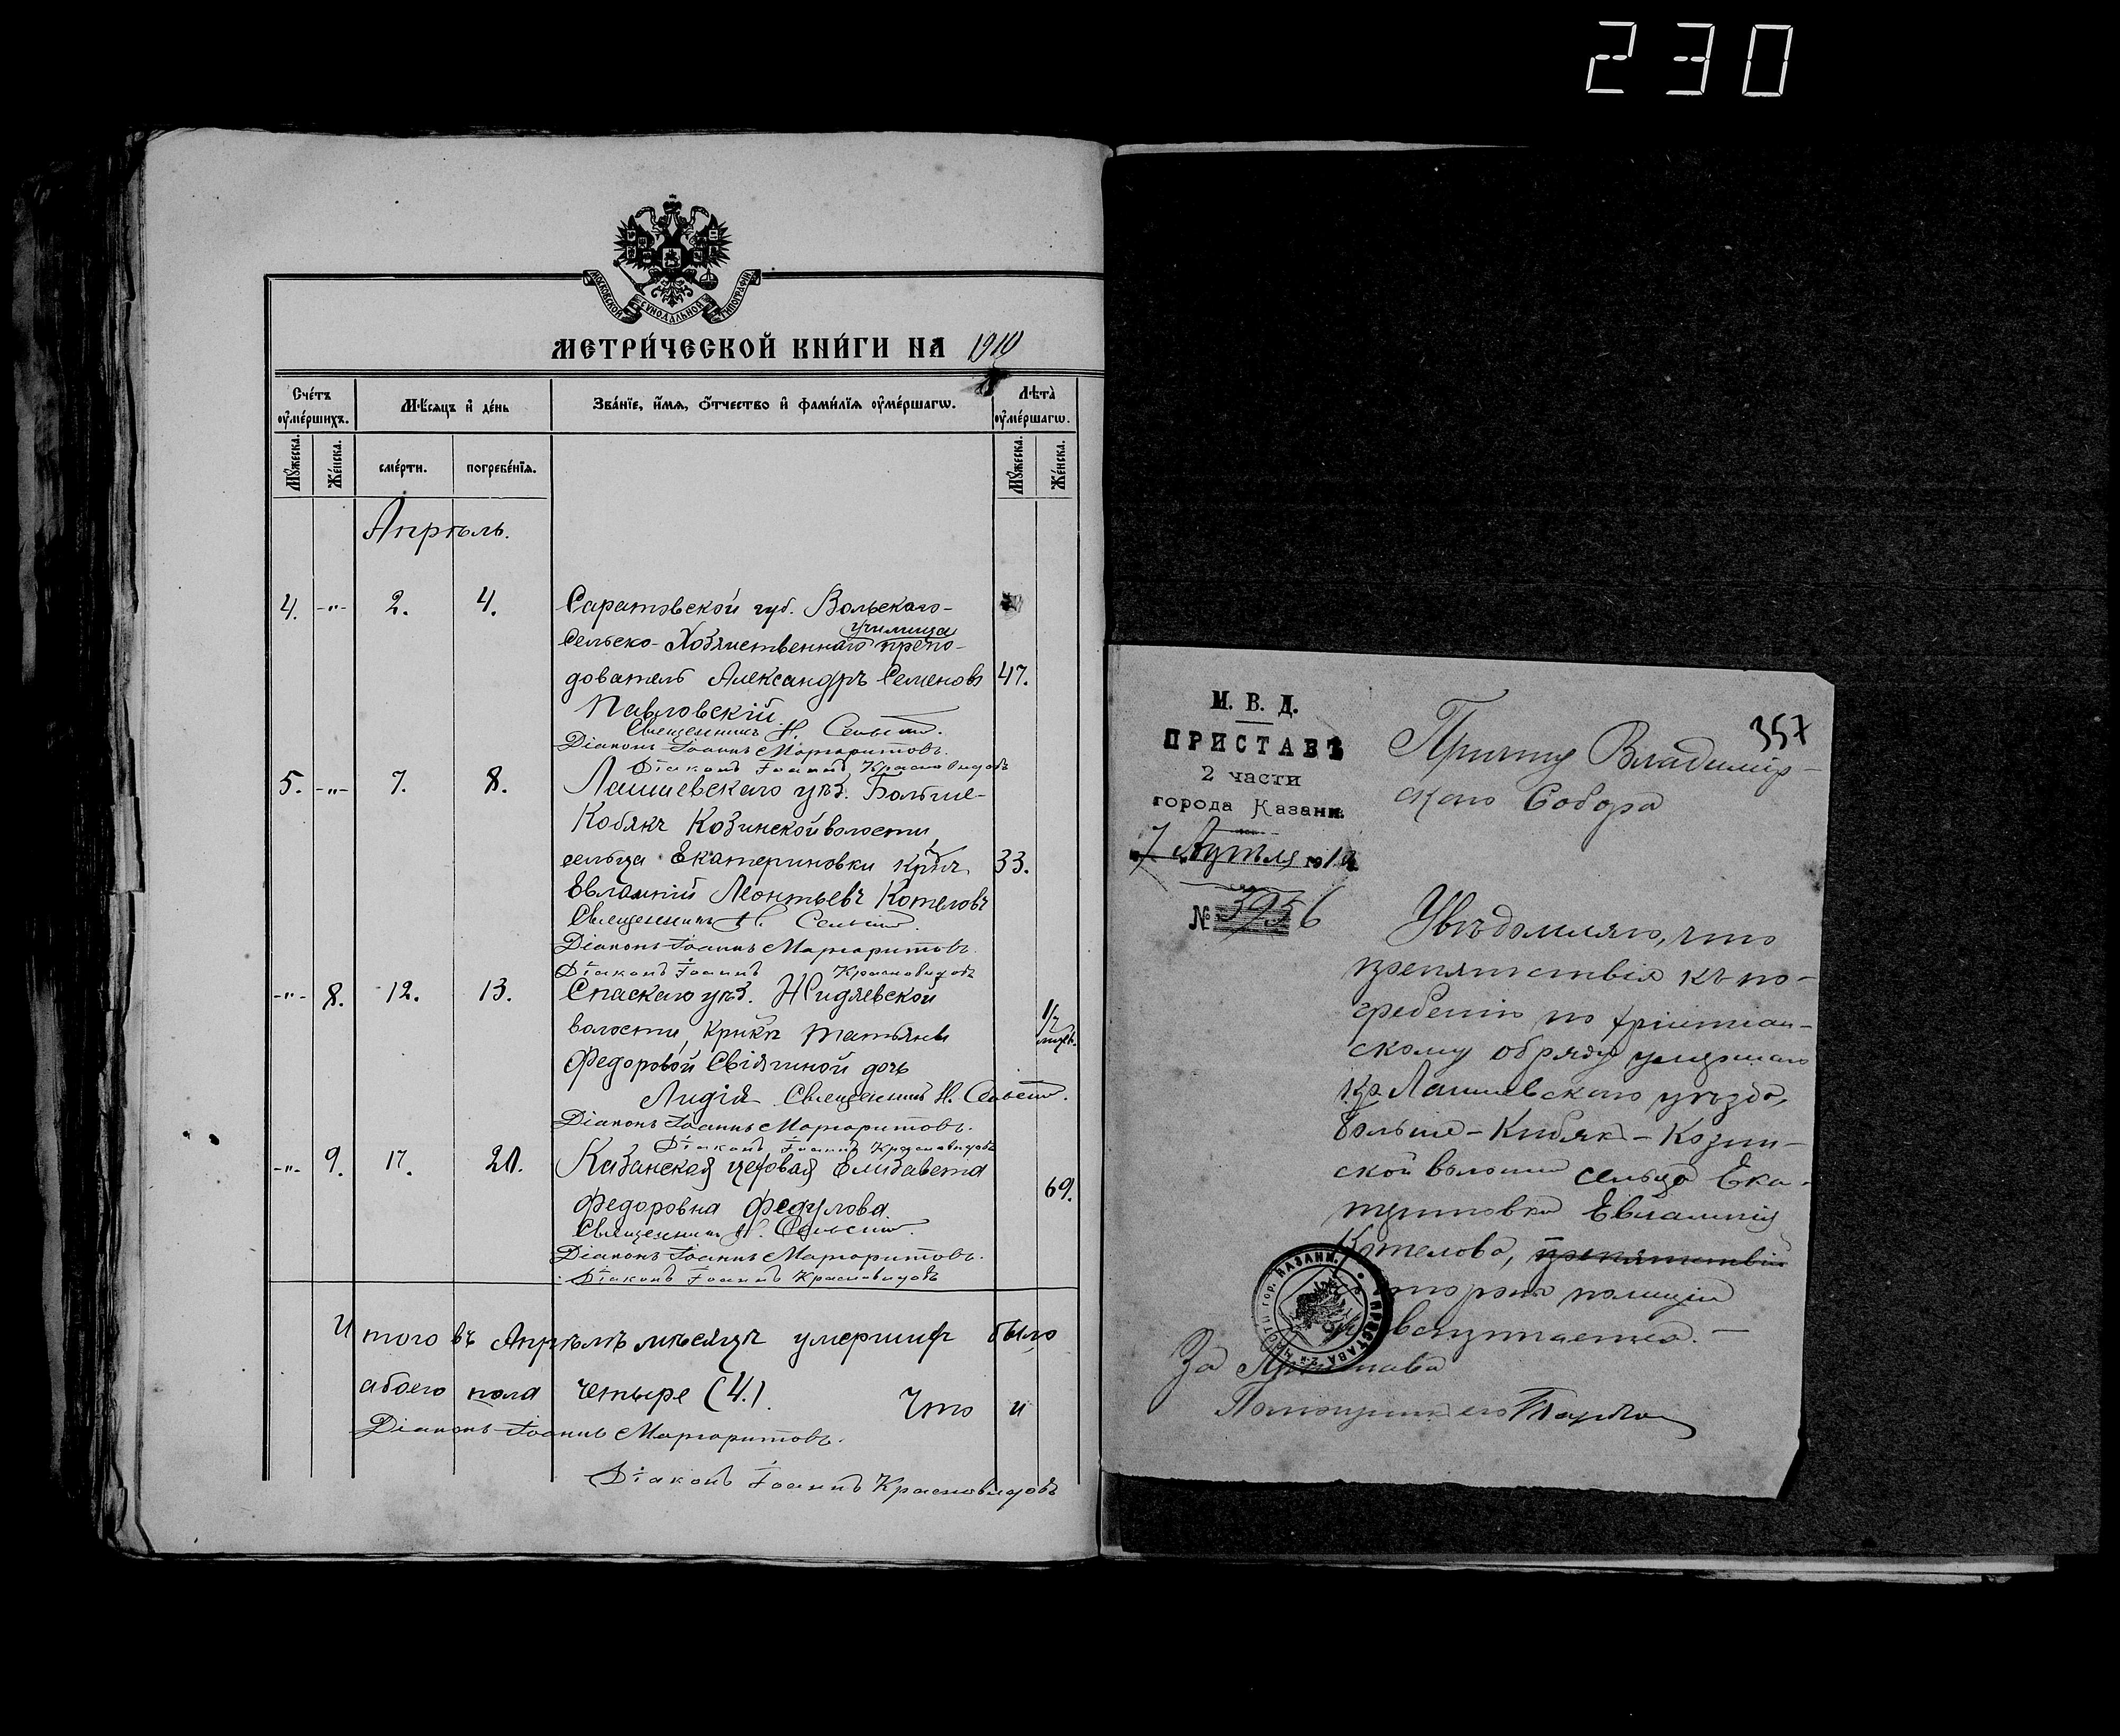 230
МОСКОВСКОЙ СѴНОДАЛЬНОЙ ТИПОГРАФІИ
МЕТРИ́ЧЕСКОЙ КНИ́ГИ НА 1910
Сче́тъ оу҆ме́ршихъ.
Мѣ́сяцъ и҆ де́нь
Зва́нїе, и҆́мѧ, ѻ҆́тчество и҆ фами́лїѧ оу҆ме́ршагѡ.
Лѣ́та оу҆ме́ршагѡ.
Мꙋ́жеска.
Же́нска.
сме́рти.
погребе́нїѧ.
Мꙋ́жеска.
Же́нска.
Апрѣль.
4. -"- 2. 4. Саратовской губ. Вольскаго-
училища
Сельско-Хозяйственнаго препо-
дователь Александръ Семеновъ 47.
Павловскій.
Священникъ Н.
Діаконъ Іоаннъ Маргаритовъ.
Діаконъ Іоаннъ Красновидовъ
5. -"- 7. 8. Лаишевскаго уѣз. Больше-
Кобякъ Козинской волости
сельца Екатериновки кр-нъ 33.
Евлампій Леонтьевъ Котеловъ
Священникъ Н.
Діаконъ Іоаннъ Маргаритовъ.
Діаконъ Іоаннъ Красновидовъ
-"- 8. 12. 13. Спаскаго уѣз. Жидяевской
волости, кр-нки Татьяны
Федоровой Свіягиной дочь
Лидія Священникъ Н.
Діаконъ Іоаннъ Маргаритовъ.
Діаконъ Іоаннъ Красновидовъ
-"- 9. 17. 20. Казанская цеховая Елизавета
69.
Федоровна Федулова
Священникъ Н.
Діаконъ Іоаннъ Маргаритовъ.
Діаконъ Іоаннъ Красновидовъ
Итого въ Апрѣлѣ мѣсяцѣ умершихъ было
обоего пола четыре (4.). Что и
Діаконъ Іоаннъ Маргаритовъ.
Діаконъ Іоаннъ Красновидовъ
357
М. В. Д.
ПРИСТАВЪ
2 части
города Казани.
7 Апрѣля 1910
№ 3956
Причту Владимір-
скаго Собора
Увѣдомляю, что
препятствія къ по-
гребенію по христіан-
скому обряду умершаго
кр. Лаишевскаго уѣзда,
Больше-Кибяк-Козин-
ской волости сельца Ека-
териновки Евлампія
Котелова, препятствій
стороны полиціи
встрѣчается.-
За Пристава
Помощникъ его